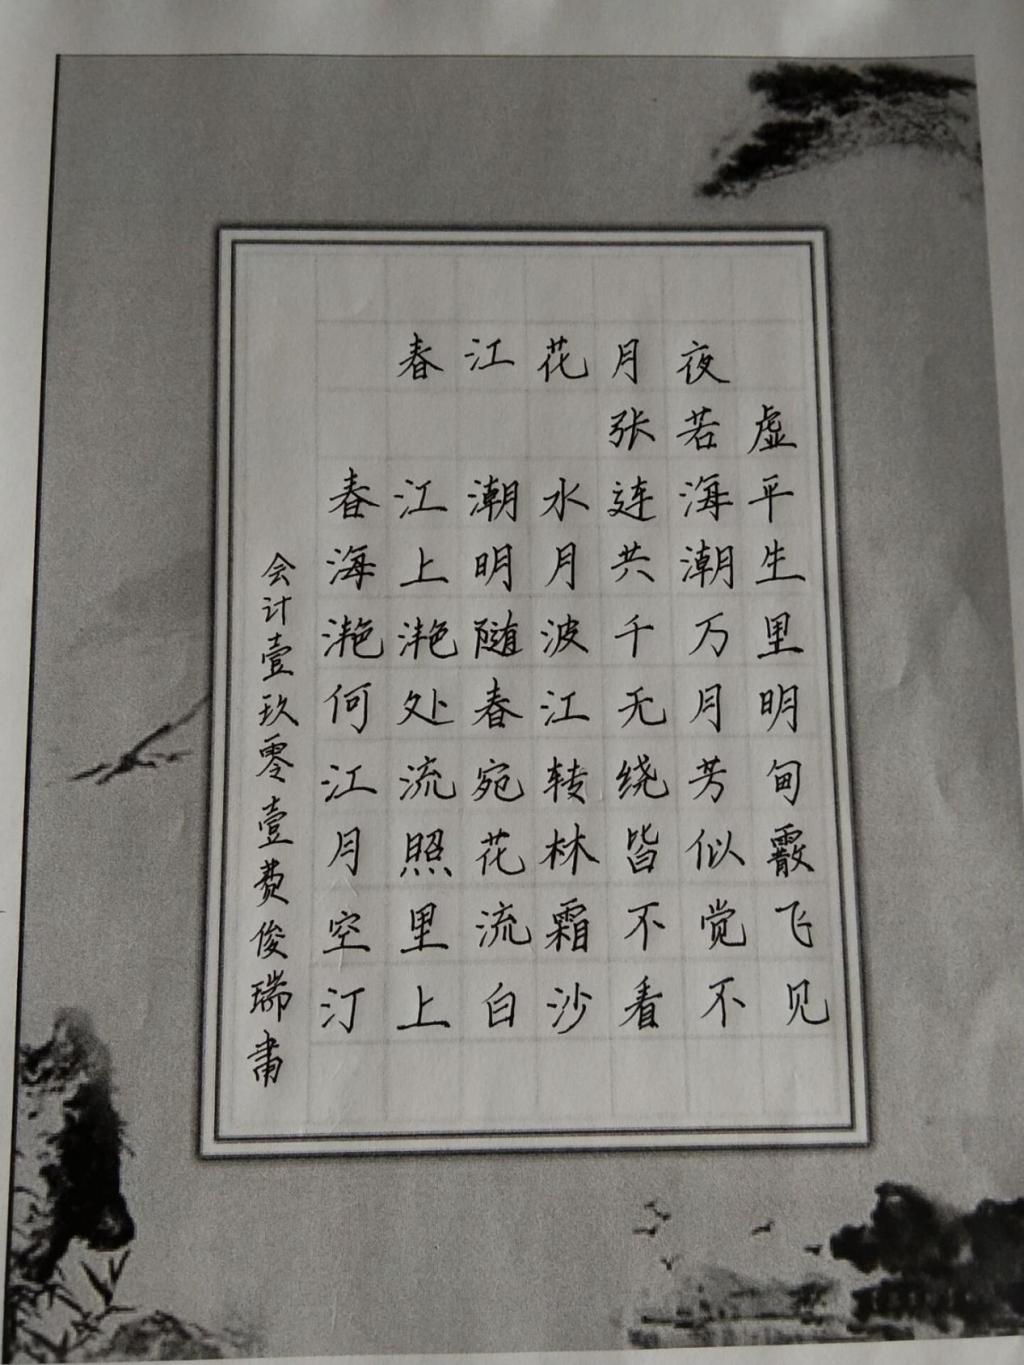 春江花月夜
张若虚
春江潮水连海平
海上明月共潮生
滟滟随波千万里
何处春江无月明
江流宛转绕芳甸
月照花林皆似霰
空里流霜不觉飞
汀上白沙看不见
会计壹玖零壹费俊瑞书